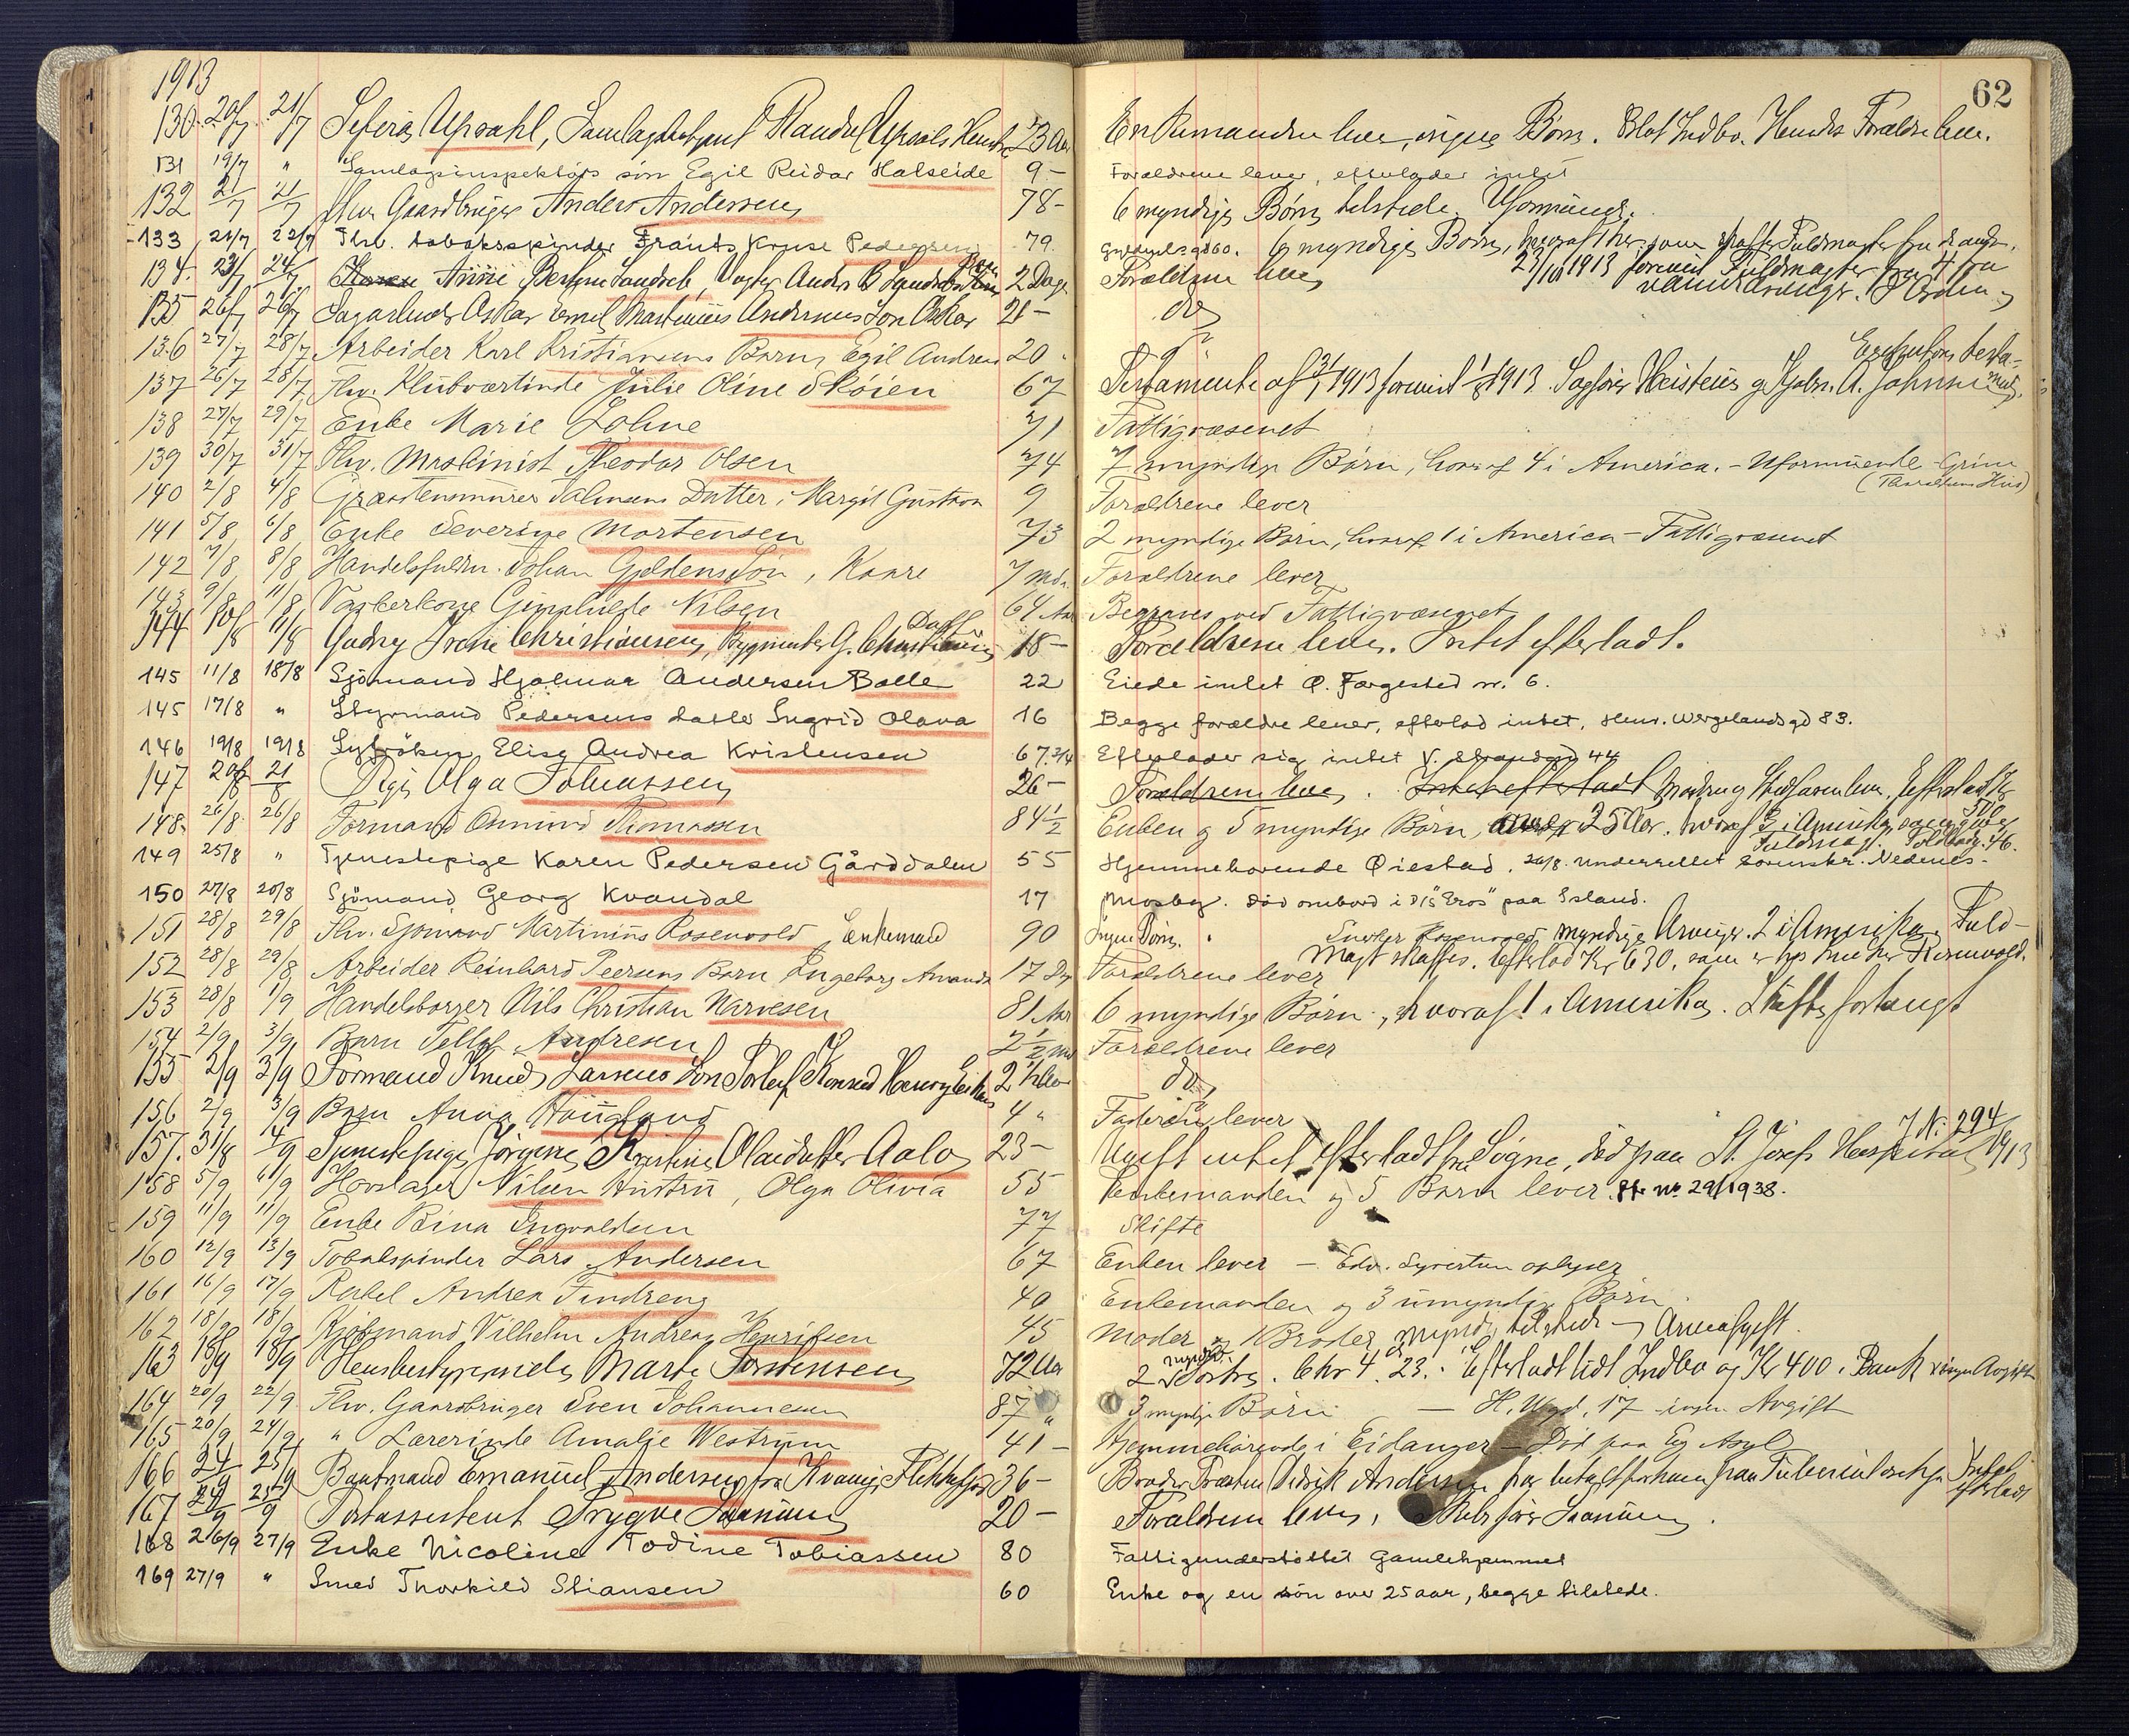 1913
62
130. 20/7 21/7 Sefira Upsahl, Samlagsbetjent Upsals Hustru 23 Aar Enkemanden lever, ingen Børn. Blot Indbo. Hendes Forældre lever.
131 19/7 " Samlagsinspektørs søn Egil Reidar Halseide 9 - Forældrene lever, efterlader intet
132 21/7 21/7 Gaardbruger Anders Andersen 78 - 6 myndige Børn, tilstede. Uformuende.
133 21/7 22/7 Fhv. tobaksspinder Frants Kruse Pedersen 79. 6 myndige Børn, hvoraf her som skaffer Fuldmagter fra de andre.
23/10 1913 forevist Fuldmagter fra 4 fra
134. 23/7 24/7 Anne Sandseb, Anders B. 2 Dage Forældrene lever
135 26/7 26/7 Sagarbeider Oskar Emil Martinius Andersens Søn Oskar 21 - do
136 27/7 28/7 Arbeider Karl Kristiansens Barn, Egil Andreas 20 "
137 26/7 28/7 Fhv. Klubværtinde Julie Oline Skøien 67 Testamente af 1913 forevist 1913. Sagfører Heistein og A. Johnsen
138 27/7 29/7 Enke Marie Lohne 71 Fattigvæsenet
139 30/7 31/7 Fhv. Maskinist Theodor Olsen 74 7 myndige Børn, hvoraf 4 i America. - Uformuende - Grim
140 2/8 4/8 Datter, Margit 9 Forældrene lever
141 5/8 6/8 Enke Severine Mortensen 73 2 myndige Børn, hvoraf 1 i America - Fattigvæsenet
142 7/8 8/8 Handelsfuldm. Johan Gyldens Søn, Kaare 7 Mdr Forældrene lever
143 9/8 11/8 Vaskerkone Nilsen 64 Aar Begraves ved Fattigvæsenet
144 10/8 11/8 Gudny Irene Christiansen, Bygmester G. Christiansens Datt 18 - Forældrene lever. Intet efterladt.
145 11/8 18/8 Sjømand Hjalmar Andersen Balle 22 Eiede intet Ø. Færgested nr. 6.
145 17/8 " Styrmand Pedersens datter Ingrid Olava 16 Begge forældre lever, efterlod intet, Henr. Wergelandsgd 83.
146 19/8 19/8 Elise Andrea Kristensen 67.3/4 Efterlader sig intet V. Strandgd 44
147 20/8 21/8 Pige Olga Johnassen 26 - Forældrene lever. Intet efterladt
148. 26/8 26/8 Formand Thomassen 84 1/2 Enken og 5 myndige Børn, 25 Aar. hvoraf i Amerika
149 25/8 " Tjenestepige Karen Pedersen Gårddalen 55 Hjemmehørende Øiestad. 26/8. underrettet sorenskr. Nedenes.
150 27/8 20/8 Sjømand Georg Kvandal 17 Mosby. Død ombord i D/S "Eros" paa Island.
151 28/8 29/8 Fhv. Sjømand Martinius Rosenvold, Enkemand 90 Ingen Børn. myndige Arvinger. 2 i Amerika. Fuld-
magt skaffes. Efterlod Kr 630, som er hos Rosenvold.
152 28/8 29/8 Arbeider Reinhard Peersens Barn Ingeborg Amanda 17 Dg Forældrene lever
153 28/8 1/9 Handelsborger Nils Christian Narvesen 81 Aar 6 myndige Børn, hvoraf 1 i Amerika. Skifte forlangt
154 2/9 3/9 Barn Tellef Andresen 2 1/2 Md Forældrene lever
155 2/9 3/9 Formand Knud Larsens Søn Torleif Konrad Henry 2 1/2 Aar do
156 2/9 3/9 Barn Anna Haugland 4 " lever
157. 31/8 4/9 Tjenestepige Jørgine Kristine Olaidatter Aalo 23 - Ugift intet efterladt fra Søgne, død paa St. Josefs Hospital J.N. 294/1913
158 5/9 6/9 Hovslager Nilsen Hustru, Olga Olivia 55 Enkemanden og 5 Børn lever. Sk. nr 29/1938.
159 11/9 11/9 Enke Bina Ingvaldsen 77 Skifte
160 12/9 13/9 Tobakspinder Lars Andersen 67 Enken lever - Edv. Syvertsen oplyser
161 16/9 17/9 Rakel Andrea Findreng 40 Enkemanden og 3 umyndige Børn.
162 18/9 18/9 Kjøbmand Vilhelm Andreas Henriksen 45 Moder og 1 Broder, myndig, tilstede - Arveafgift.
163 18/9 18/9 Husbestyrerinde Marte Torstensen 72 Aar 2 myndige Søstre. Chr 4. 23. Efterladt lidt Indbo og Kr 400. i Bank ingen Avgift
164 20/9 22/9 Fhv. Gaardbruger Sven Johannesen 87 " 3 myndige Børn - 17 - ingen Avgift
165 20/9 24/9 " Lærerinde Amalie Westrum 41 - Hjemmehørende i Eidanger - Død paa Eg Asyl
166 24/9 25/9 Baatsmand Emanuel Andersen fra Flekkefjord 36 - Broder Andersen Intet efterladt
167 24/9 25/9 Postassistent Trygve Saanum 20 - Forældrene lever, Saanum.
168 26/9 27/9 Enke Nicoline Todine Tobiassen 80 Fattigunderstøttet Gamlehjemmet
169 27/9 " Smed Thorkild Stiansen 60 Enke og en søn over 25 aar, begge tilstede.